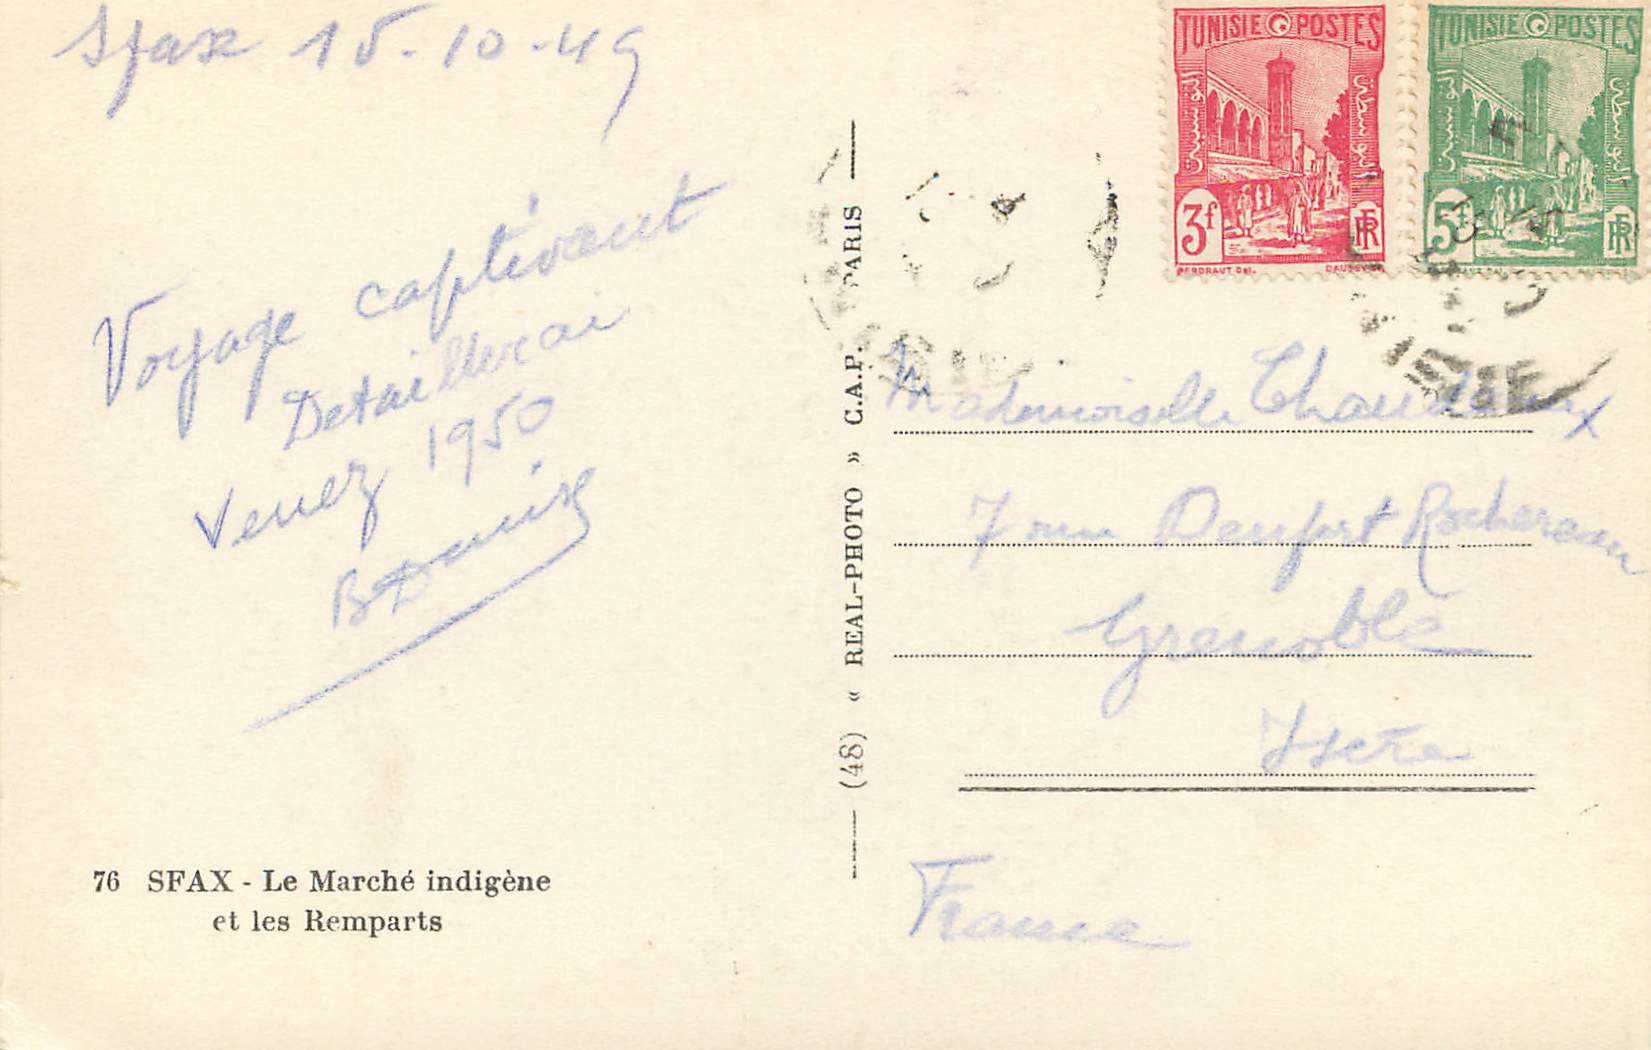 Sfax 15-10-49
Voyage captivant
Detaillerai
Venez 1950
76 SFAX - Le Marché indigène
et les Remparts
(48) « REAL-PHOTO » C.A.P. PARIS
TUNISIE POSTES
3f
RF
TUNISIE POSTES
5f
RF
Mademoiselle
7 rue Denfert Rochereau
Grenoble
Isère
France